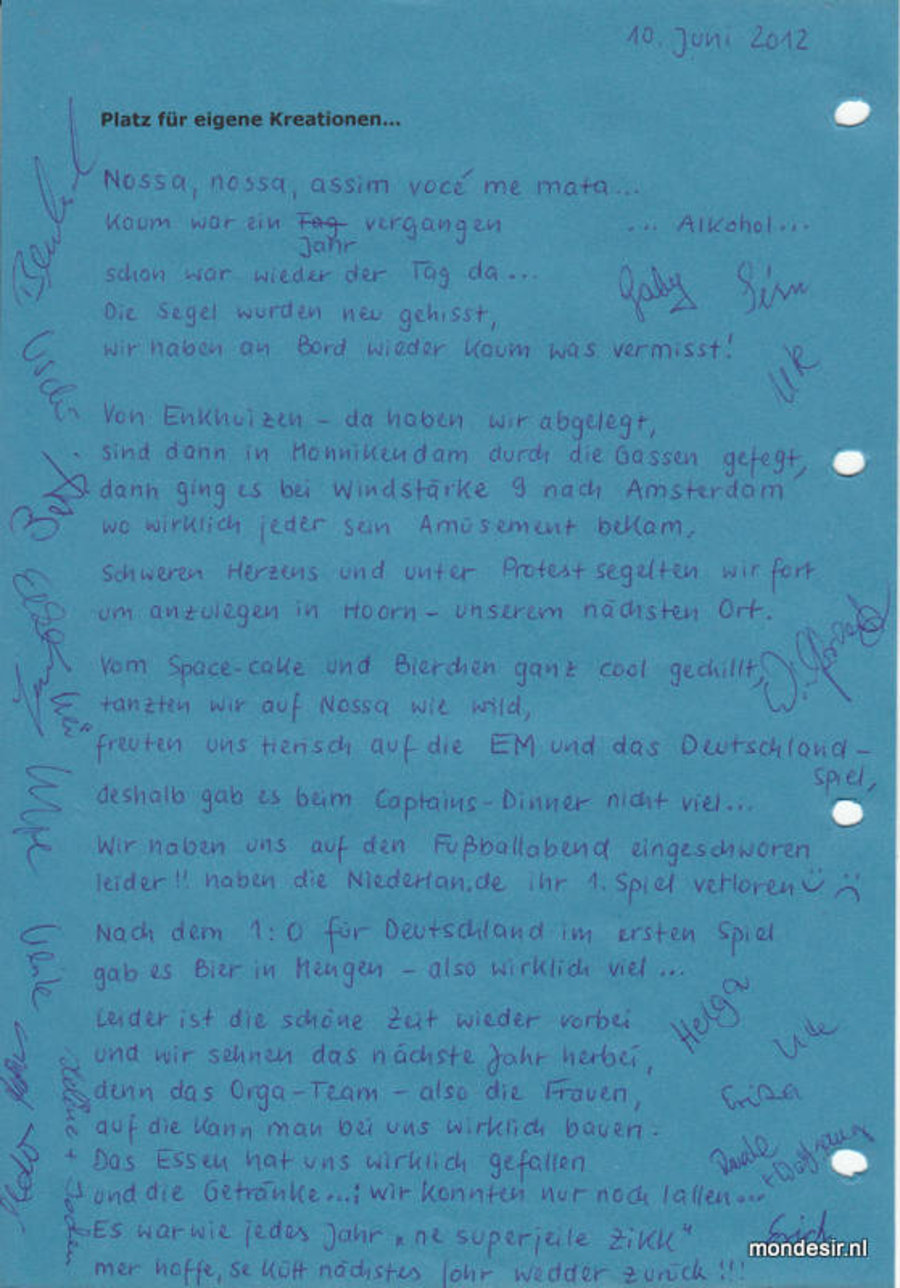 10. Juni 2012
Platz für eigene Kreationen...
Nossa, nossa, assim vocé me mata...
Kaum war ein Tag vergangen
Jahr
... Alkohol...
schon war wieder der Tag da...
Die Segel wurden neu gehisst,
Gaby
wir haben an Bord wieder kaum was vermisst!
Von Enkhuizen – da haben wir abgelegt,
sind dann in Monnikendam durch die Gassen gefegt,
dann ging es bei Windstärke 9 nach Amsterdam
wo wirklich jeder sein Amüsement bekam.
Schweren Herzens und unter Protest segelten wir fort
um anzulegen in Hoorn – unserem nächsten Ort.
Vom Space-cake und Bierchen ganz cool gechillt,
tanzten wir auf Nossa wie wild,
freuten uns tierisch auf die EM und das Deutschland-
spiel,
deshalb gab es beim Captains-Dinner nicht viel...
Wir haben uns auf den Fußballabend eingeschworen
leider!! haben die Niederlan.de ihr 1. Spiel verloren
Nach dem 1:0 für Deutschland im ersten Spiel
gab es Bier in Mengen – also wirklich viel...
Leider ist die schöne Zeit wieder vorbei
und wir sehnen das nächste Jahr herbei,
Helga
denn das Orga-Team – also die Frauen,
Erika
auf die kann man bei uns wirklich bauen.
Das Essen hat uns wirklich gefallen
+ Wolfgang
und die Getränke...; wir konnten nur noch lallen...
Es war wie jedes Jahr „ne superjeile Zikk"
Erich
mer hoffe, se kütt nächstes Johr wedder zurück!!!
Uschi
Ulrike
mondesir.nl